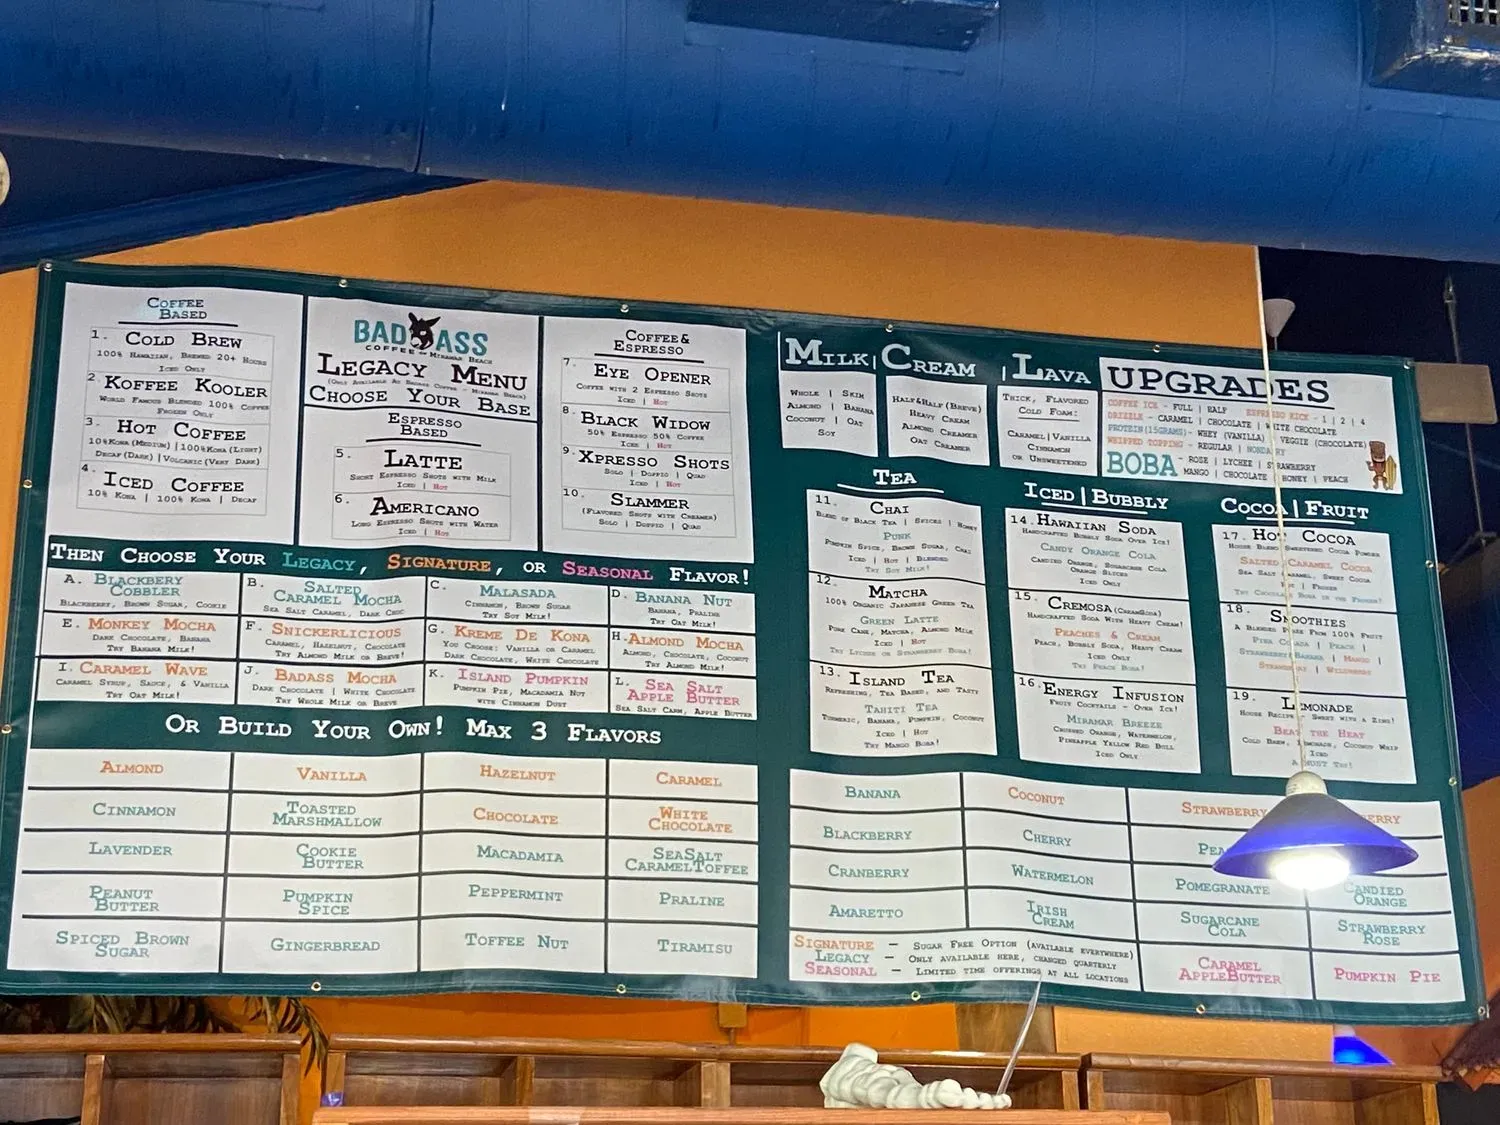 Coffee
Based
1. Cold Brew
100% Hawaiian, Brewed 20+ Hours
Iced Only
2. Koffee Kooler
World Famous Blended 100% Coffee
Frozen Only
3. Hot Coffee
10%Kona(Medium) |100%Kona(Light)
Decaf(Dark) |Volcanic(Very Dark)
4. Iced Coffee
10% Kona | 100% Kona | Decaf
BAD ASS
COFFEE OF Miramar Beach
Legacy Menu
(Only Available At Badass Coffee - Miramar Beach)
Choose Your Base
Espresso
Based
5. Latte
Short Espresso Shots with Milk
Iced | Hot
6. Americano
Long Espresso Shots with Water
Iced | Hot
Coffee&
Espresso
7. Eye Opener
Coffee with 2 Espresso Shots
Iced | Hot
8. Black Widow
50% Espresso 50% Coffee
Iced | Hot
9. Xpresso Shots
Solo | Doppio | Quad
Iced | Hot
10. Slammer
(Flavored Shots with Creamer)
Solo | Doppio | Quad
Then Choose Your Legacy, Signature, or Seasonal Flavor!
A. Blackbery
Cobbler
Blackberry, Brown Sugar, Cookie
B. Salted
Caramel Mocha
Sea Salt Caramel, Dark Choc
C. Malasada
Cinnamon, Brown Sugar
Try Soy Milk!
D. Banana Nut
Banana, Praline
Try Oat Milk!
E. Monkey Mocha
Dark Chocolate, Banana
Try Banana Milk!
F. Snickerlicious
Caramel, Hazelnut, Chocolate
Try Almond Milk or Breve!
G. Kreme De Kona
You Choose: Vanilla or Caramel
Dark Chocolate, White Chocolate
H. Almond Mocha
Almond, Chocolate, Coconut
Try Almond Milk!
I. Caramel Wave
Caramel Syrup, Sauce, & Vanilla
Try Oat Milk!
J. Badass Mocha
Dark Chocolate | White Chocolate
Try Whole Milk or Breve
K. Island Pumpkin
Pumpkin Pie, Macadamia Nut
with Cinnamon Dust
L. Sea Salt
Apple Butter
Sea Salt Carm, Apple Butter
Or Build Your Own! Max 3 Flavors
Almond Vanilla Hazelnut Caramel
Cinnamon Toasted Marshmallow Chocolate White Chocolate
Lavender Cookie Butter Macadamia SeaSalt CaramelToffee
Peanut Butter Pumpkin Spice Peppermint Praline
Spiced Brown Sugar Gingerbread Toffee Nut Tiramisu
Milk | Cream | Lava
Whole | Skim
Almond | Banana
Coconut | Oat
Soy
Half&Half(Breve)
Heavy Cream
Almond Creamer
Oat Creamer
Thick, Flavored
Cold Foam:
Caramel|Vanilla
Cinnamon
or Unsweetened
UPGRADES
COFFEE ICE - FULL | HALF ESPRESSO KICK - 1 | 2 | 4
DRIZZLE - CARAMEL | CHOCOLATE | WHITE CHOCOLATE
PROTEIN(15GRAMS)- WHEY (VANILLA) | VEGGIE (CHOCOLATE)
WHIPPED TOPPING - REGULAR |
BOBA - ROSE | LYCHEE | STRAWBERRY
MANGO | CHOCOLATE | HONEY | PEACH
Tea
11. Chai
Blend of Black Tea | Spices | Honey
Punk
Pumpkin Spice, Brown Sugar, Chai
Iced | Hot | Blended
Try Soy Milk!
12. Matcha
100% Organic Japanese Green Tea
Green Latte
Pure Cane, Matcha, Almond Milk
Iced | Hot
Try Lychee or Strawberry Boba!
13. Island Tea
Refreshing, Tea Based, and Tasty
Tahiti Tea
Turmeric, Banana, Pumpkin, Coconut
Iced | Hot
Try Mango Boba!
Iced|Bubbly
14. Hawaiian Soda
Handcrafted Bubbly Soda Over Ice!
Candy Orange Cola
Candied Orange, Sugarcane Cola
Orange Slices
Iced Only
15. Cremosa(CreamSoda)
Handcrafted Soda With Heavy Cream!
Peaches & Cream
Peach, Bubbly Soda, Heavy Cream
Iced Only
Try Peach Boba!
16. Energy Infusion
Fruit Cocktails - Over Ice!
Miramar Breeze
Crushed Orange, Watermelon,
Pineapple Yellow Red Bull
Iced Only
Cocoa|Fruit
17. Hot Cocoa
House Blend Sweetened Cocoa Powder
Salted Caramel Cocoa
Sea Salt Caramel, Sweet Cocoa
| Frozen
Try Chocolate Boba in the Frozen!
18. Smoothies
A Blended Puree From 100% Fruit
Pina Colada | Peach |
Strawberry Banana | Mango |
Strawberry | Wildberry
19. Lemonade
House Recipe - Sweet with a Zing!
Beat the Heat
Cold Brew, Lemonade, Coconut Whip
Iced
A Must Try!
Banana Coconut Strawberry
Blackberry Cherry
Cranberry Watermelon Pomegranate Candied Orange
Amaretto Irish Cream Sugarcane Cola Strawberry Rose
Signature — Sugar Free Option (available everywhere)
Legacy — Only available here, changed quarterly
Seasonal — Limited time offerings at all locations
Caramel AppleButter Pumpkin Pie